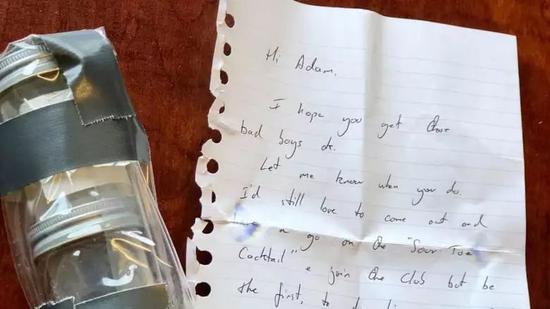 Hi Adam.
I hope you get those
bad boys ok.
Let me know when you do.
I'd still love to come out and
have a go on the "Sour Toe
Cocktail" & join the club but be
the first, to